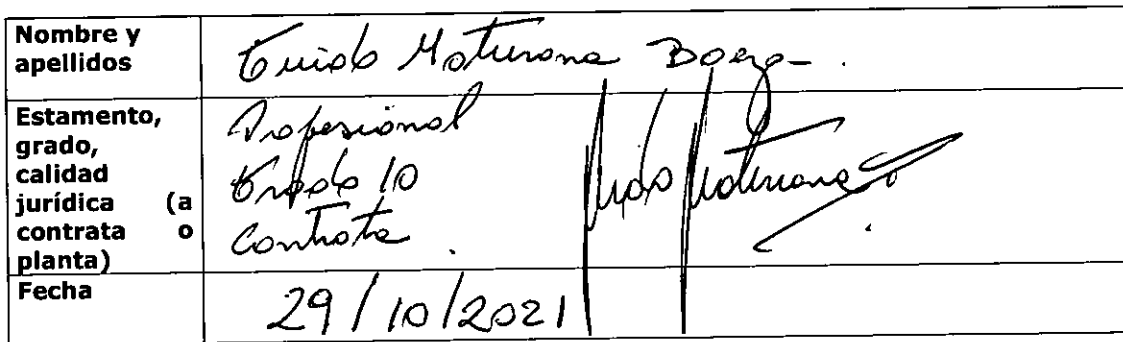 Nombre y
apellidos
Guido Maturana Baeza.
Estamento,
grado,
calidad
jurídica (a
contrata o
planta)
Profesional
Grado 10
Contrata.
Guido Maturana
Fecha
29/10/2021